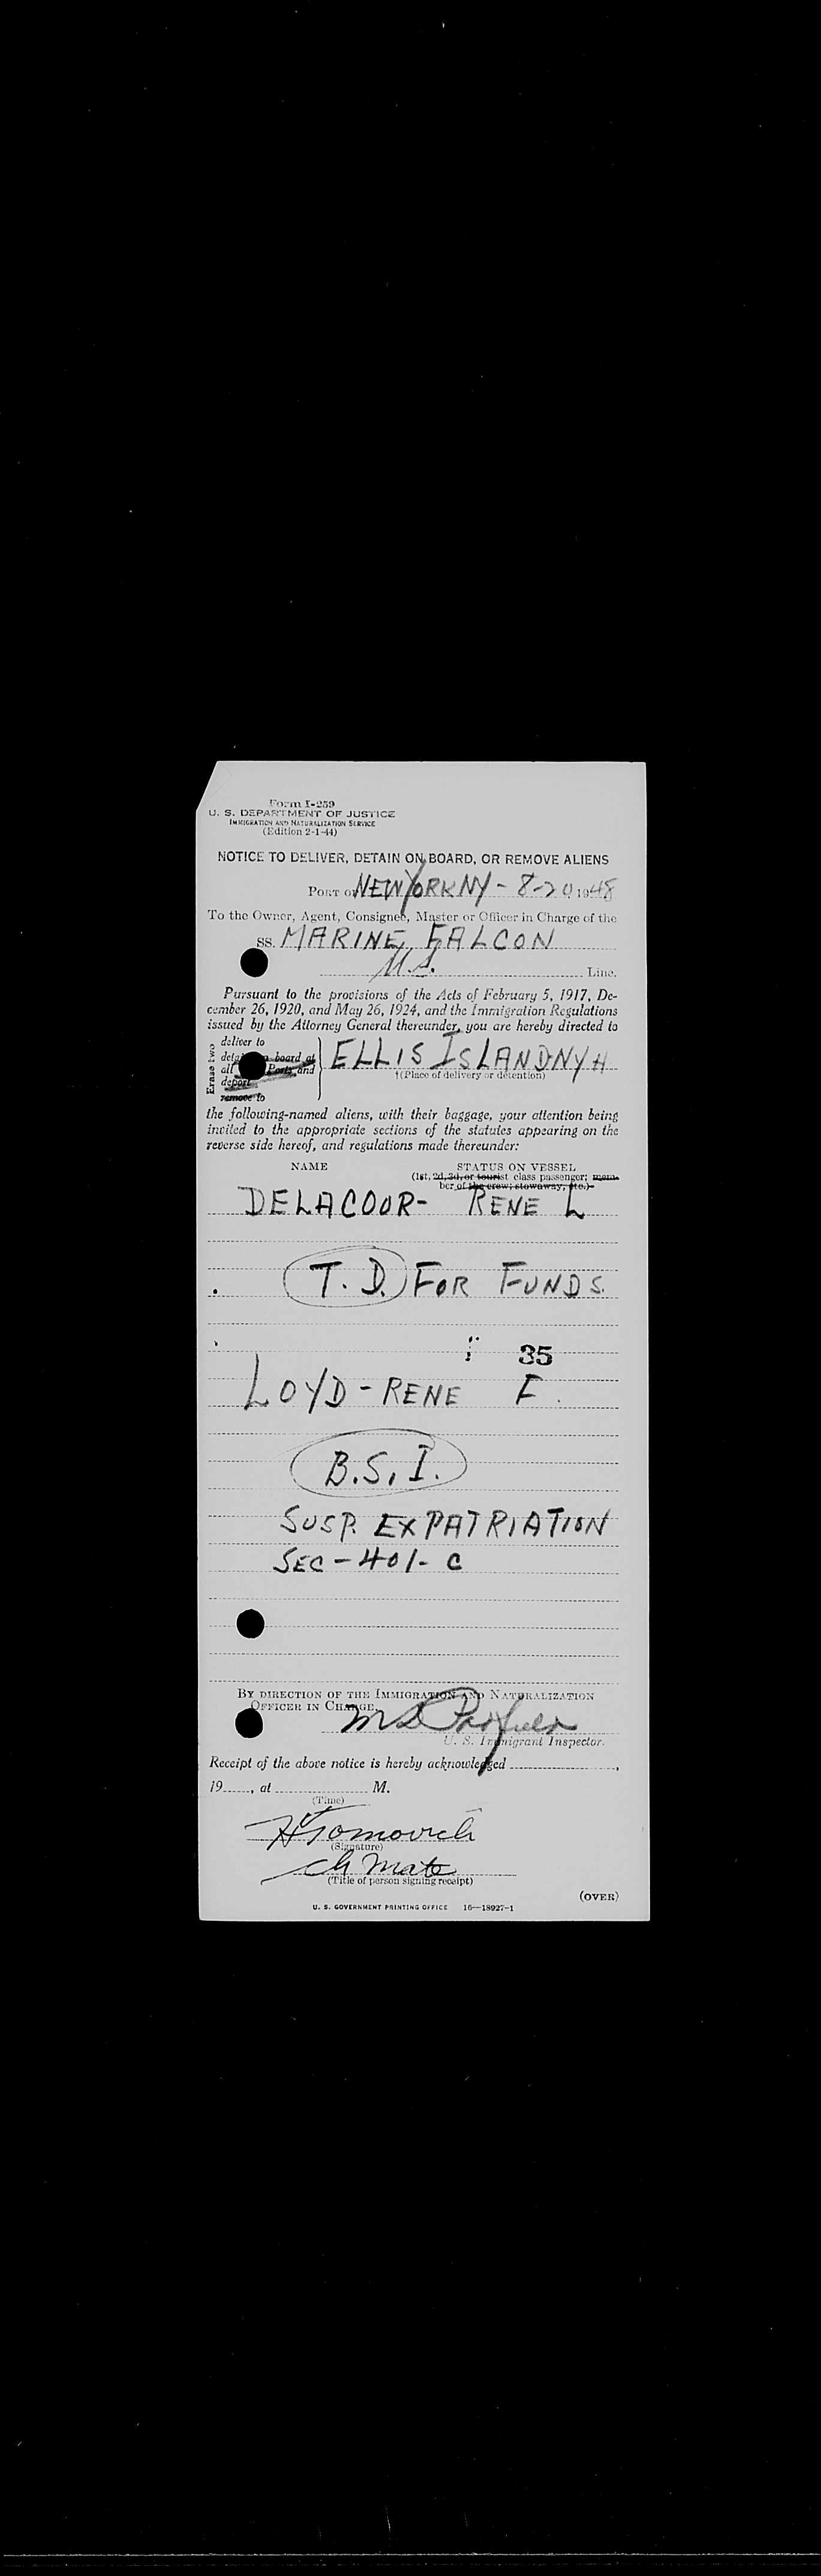 Form I-259
U. S. DEPARTMENT OF JUSTICE
IMMIGRATION AND NATURALIZATION SERVICE
(Edition 2-1-44)
NOTICE TO DELIVER, DETAIN ON BOARD, OR REMOVE ALIENS
PORT OF NEW YORK NY - 8-20 1948
To the Owner, Agent, Consignee, Master or Officer in Charge of the
SS. MARINE FALCON
U.S. Line.
Pursuant to the provisions of the Acts of February 5, 1917, De-
cember 26, 1920, and May 26, 1924, and the Immigration Regulations
issued by the Attorney General thereunder, you are hereby directed to
Erase two
deliver to
board at
all Ports and
deport
remove to
ELLIS ISLAND NYH
†(Place of delivery or detention)
the following-named aliens, with their baggage, your attention being
invited to the appropriate sections of the statutes appearing on the
reverse side hereof, and regulations made thereunder:
NAME STATUS ON VESSEL
(1st, 2d, 3d, or tourist class passenger; mem-
ber of the crew; stowaway, etc.)
DELACOUR- RENE L
T. D. FOR FUNDS.
35
LOYD - RENE F.
B.S.I.
SUSP. EXPATRIATION
SEC - 401- C
BY DIRECTION OF THE IMMIGRATION AND NATURALIZATION
OFFICER IN CHARGE,
U. S. Immigrant Inspector.
Receipt of the above notice is hereby acknowledged ,
19 , at M.
(Time)
Tomovich
(Signature)
ch mate
(Title of person signing receipt)
(OVER)
U. S. GOVERNMENT PRINTING OFFICE 16—18927-1